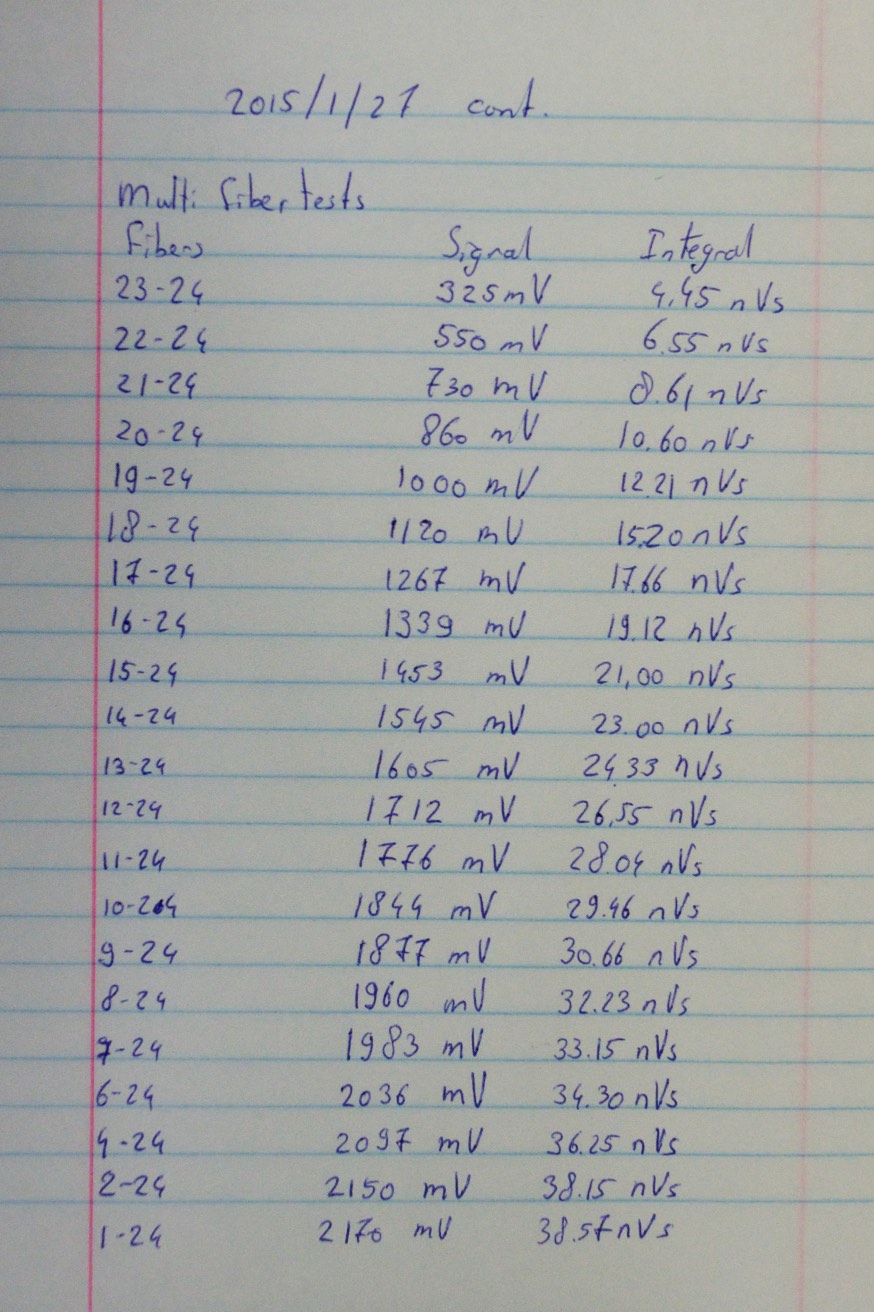 2015/1/27 cont.
Multi fiber tests
Fibers Signal Integral
23-24 325 mV 4.45 nVs
22-24 550 mV 6.55 nVs
21-24 730 mV 8.61 nVs
20-24 860 mV 10.60 nVs
19-24 1000 mV 12.21 nVs
18-24 1120 mV 15.20 nVs
17-24 1267 mV 17.66 nVs
16-24 1339 mV 19.12 nVs
15-24 1453 mV 21,00 nVs
14-24 1545 mV 23.00 nVs
13-24 1605 mV 24,33 nVs
12-24 1712 mV 26,55 nVs
11-24 1776 mV 28.04 nVs
10-24 1844 mV 29.46 nVs
9-24 1877 mV 30.66 nVs
8-24 1960 mV 32.23 nVs
7-24 1983 mV 33.15 nVs
6-24 2036 mV 34.30 nVs
4-24 2097 mV 36.25 nVs
2-24 2150 mV 38.15 nVs
1-24 2170 mV 38.57 nVs